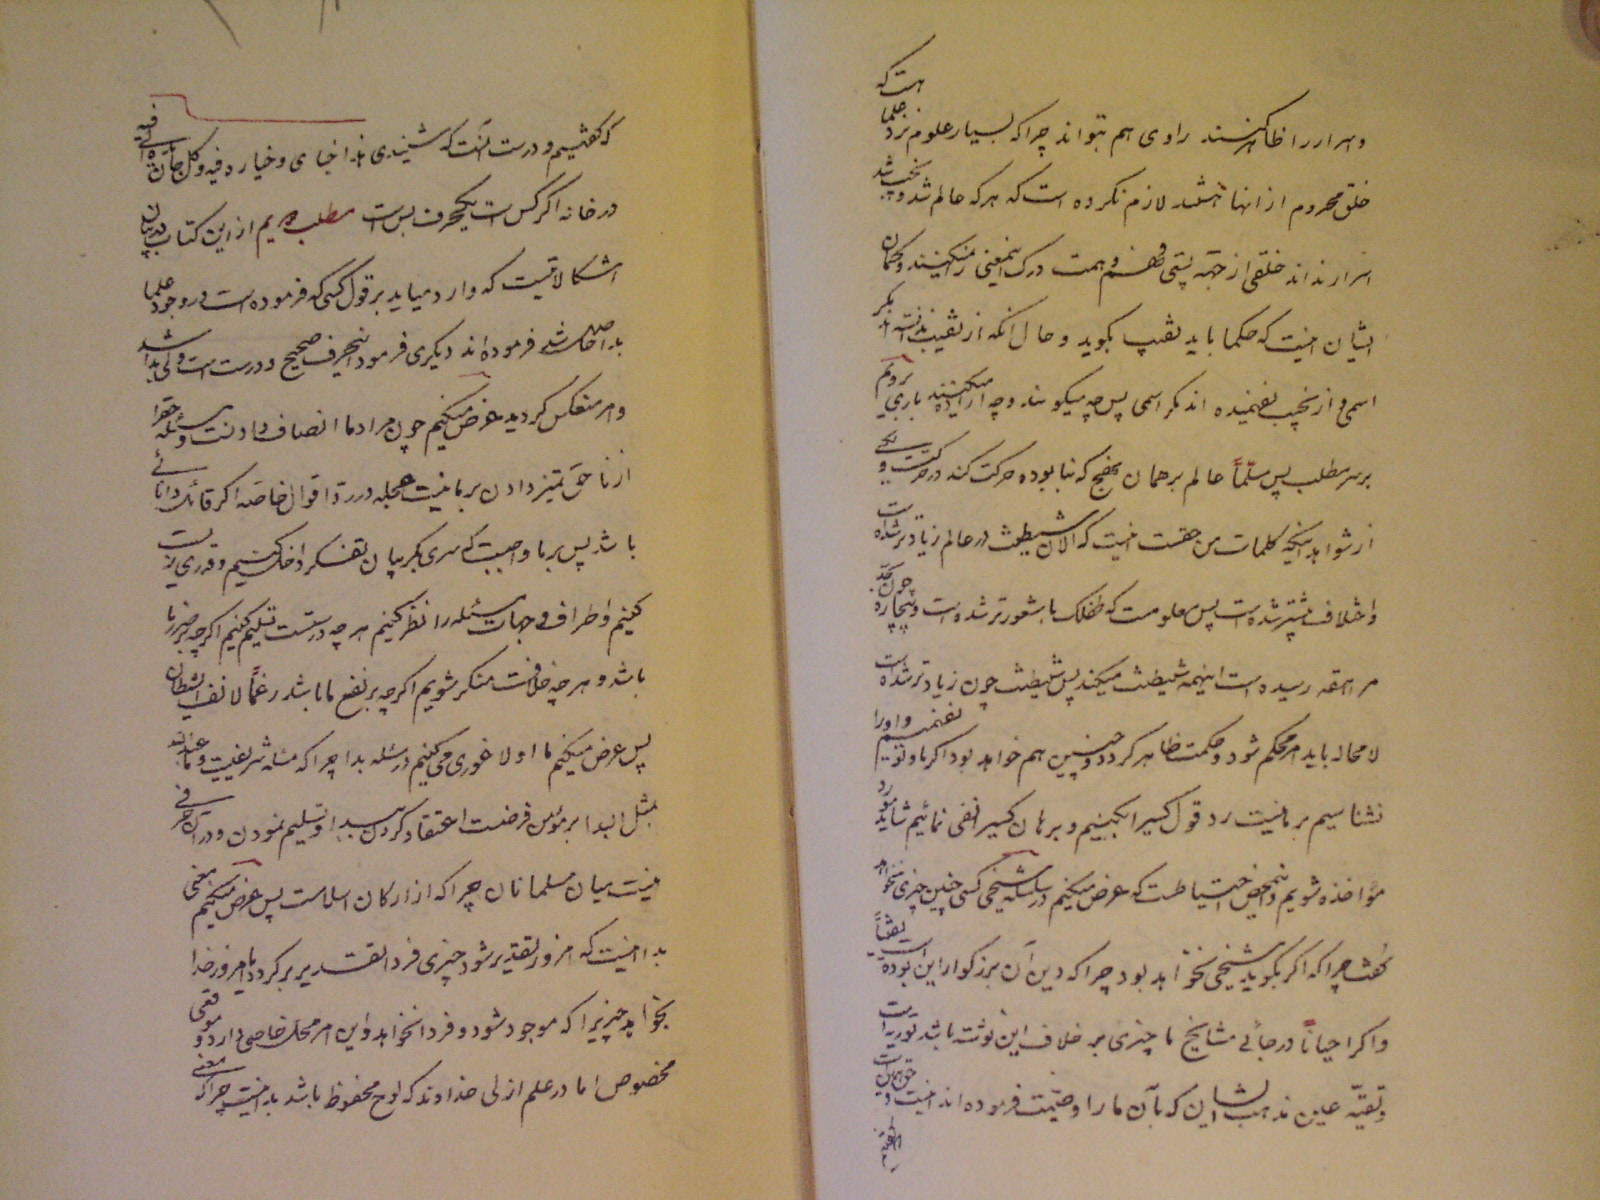 هست که
و اسرار را ظاهر کنند راوی هم نتواند چرا که بسیار علوم نزد علما
خلق محروم از آنها هستند لازم نکرده است که هر که عالم شد و نجیب شد
اسرار نداند خلقی از جهة پستی فهم و همت درک اینمعنی را نمیکنند و گمان
ایشان اینست که حکما باید نقیب بگوید و حال آنکه از نقیب ندانسته اند مگر
اسمی و از نجیب نفهمیده اند مگر اسمی پس چه میگویند و چه اراده میکنند باری برویم
بر سر مطلب پس مسلّماً عالم بر همان نهج که بنا بوده حرکت کند در حرکت و
از شواهد اینکه کلمات من حقست اینست که الآن شیطنت در عالم زیادتر شده است
و اختلاف بیشتر شده است پس معلومست که طفلک با شعورتر شده است و بیچاره چون بحدّ
مراهقه رسیده است اینهمه شیطنت میکند پس شیطنت چون زیادتر شده است
لا محاله باید امر محکم شود و حکمت ظاهر گردد و چنین هم خواهد بود اگر ما نفهمیم و او را
نشناسیم بر ما نیست رد قول کسی را بکنیم و برهان کسی را نفی نمائیم شاید مورد
مؤاخذه شویم و اینمحض احتیاطست که عرض میکنم در سلسله شیخی کسی چنین چیزی نخواهد
گفت چرا که اگر بگوید شیخی نخواهد بود چرا که دین آن بزرگوار این بوده است یقیناً
و اگر احیاناً در جائی مشایخ ما چیزی بر خلاف این نوشته باشند توریه است
و تقیّه عین مذهب ایشان که بآن ما را وصیّت فرموده اند اینست و حق همان است
که گفتیم و درست آنست که شنیدی هذا جنای و خیاره فیه و کل جان یده الی فیه
در خانه اگر کس است یکحرف بس است مطلب دویم از این کتاب در بیان
اشکالاتیست که وارد میاید بر قول کسی که فرموده است در وجود علما
بدا حاصل شد فرموده اند دیگری فرمود اینحرف صحیح و درست است ولی بدا شد
و امر منعکس گردید عرض میکنم چون مراد ما انصاف دادنست و مسئله حق را
از نا حق تمیز دادن بر ما نیست عجله در رد اقوال خاصه اگر قائلش دانائی
باشد پس بر ما واجبست که سری بگریبان تفکر داخل کنیم و قدری زیست
کنیم و اطراف و جهات مسئله را نظر کنیم هر چه درستست تسلیم کنیم اگر چه بر ضرر ما
باشد و هر چه خلافست منکر شویم اگر چه بر نفع ما باشد رغماً لانف الشیطان
پس عرض میکنم ما اولا غوری میکنیم در مسئله بدا چرا که مسئله شریفیست و ما عبد الله
بمثل البدا بر مؤمن فرضست اعتقاد کردن ببدا و تسلیم نمودن و در آن حرفی
نیست میان مسلمانان چرا که از ارکان اسلامست پس عرض میکنم معنی
بدا اینست که امروز تقدیر شود چیزی فردا تقدیر بر گردد یا امروز خدا
بخواهد چیزیرا که موجود شود و فردا نخواهد و این امر محل خاصی دارد و موقعی
مخصوص اما در علم ازلی خداوند که لوح محفوظ باشد بدا نیست چرا که معنی